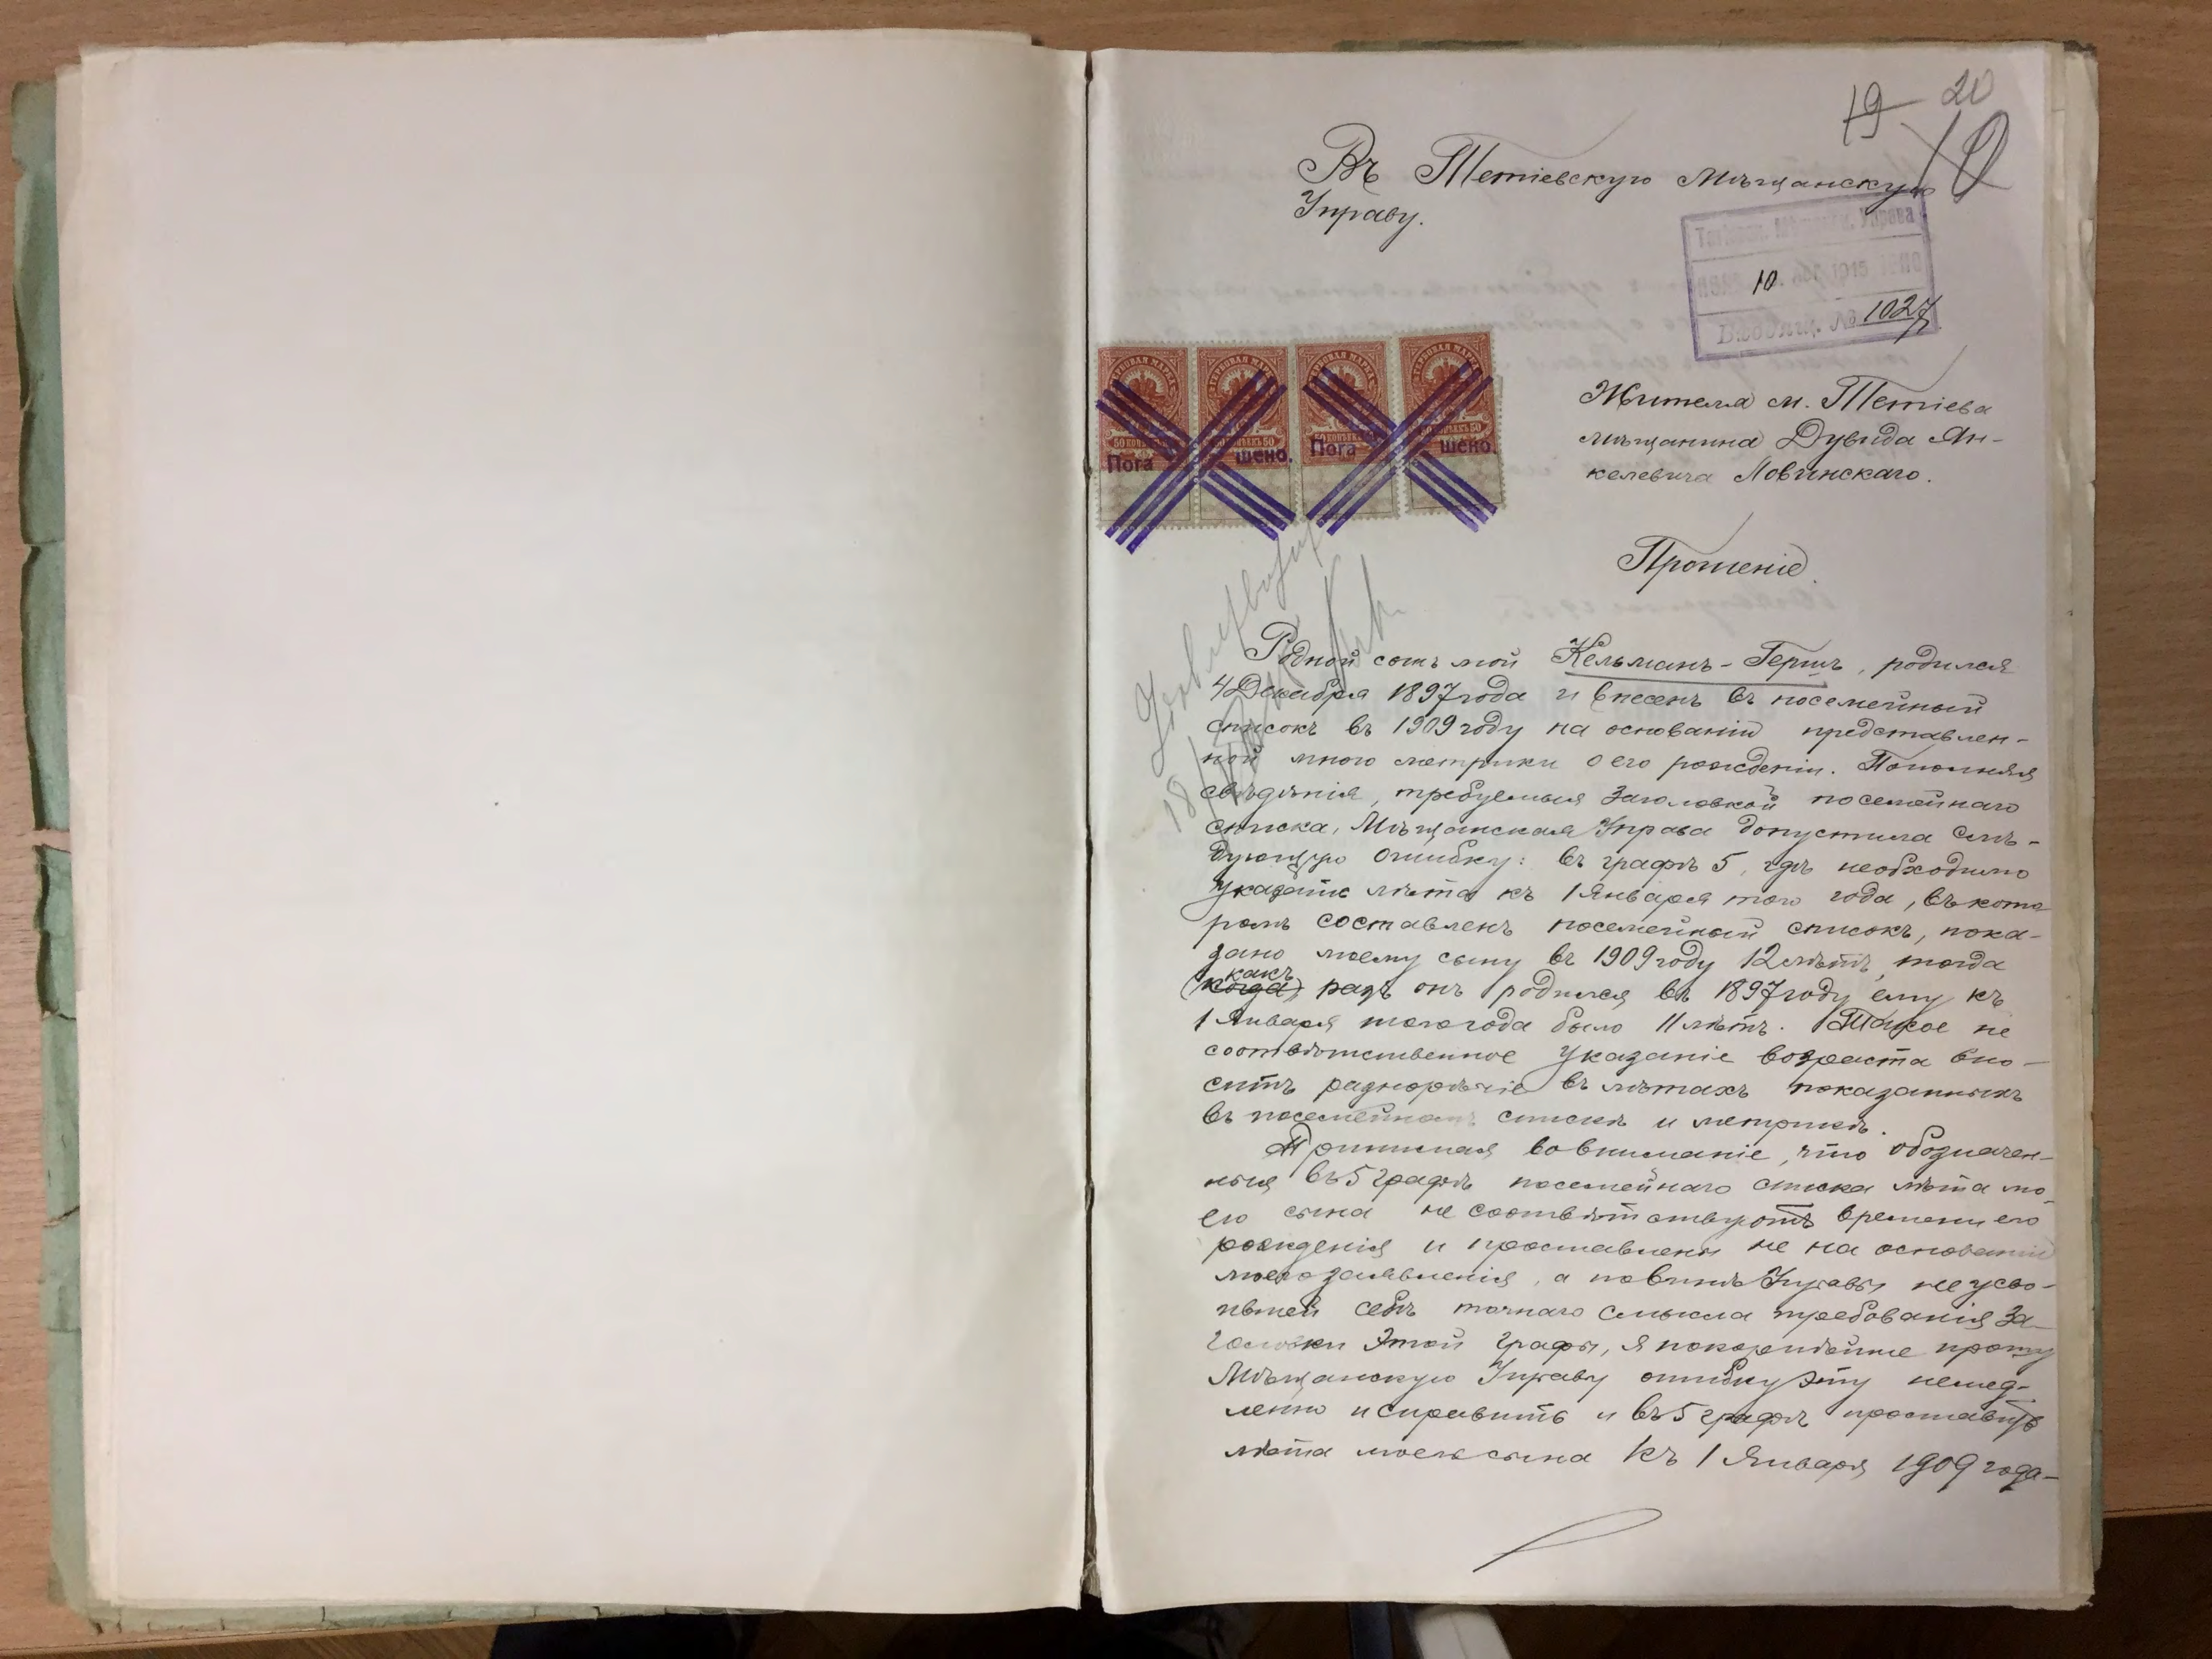 19 20
10
Въ Тетіевскую Мѣщанскую
Управу.
Управа
10 1915
Входящ. № 1027
ГЕРБОВАЯ МАРКА ГЕРБОВАЯ МАРКА ГЕРБОВАЯ МАРКА ГЕРБОВАЯ МАРКА
50 КОПѢЕКЪ 50
Пога шено. Пога шено.
Жителя м. Тетіева
мѣщанина Дувида Ян-
келевича Ловинскаго.
Прошеніе.
Родной сынъ мой Кельманъ-Гершъ, родился
4 Декабря 1897 года и внесенъ въ посемейный
списокъ въ 1909 году на основаніи представлен-
ной мною метрики о его рожденіи. Пополняя
свѣдѣнія, требуемыя заголовкой посемейнаго
списка, Мѣщанская Управа допустила слѣ-
дующую ошибку: въ графѣ 5, гдѣ необходимо
указать лѣта къ 1 Января того года, въ кото
ромъ составленъ посемейный списокъ, пока-
зано моему сыну въ 1909 году 12 лѣтъ, тогда
какъ
(когда) разъ онъ родился въ 1897 году ему къ
1 Января того года было 11 лѣтъ. Такое не
соотвѣтственное указаніе возраста вно-
ситъ разнорѣчіе въ лѣтахъ показанныхъ
въ посемейномъ спискѣ и метрикѣ.
Принимая во вниманіе, что обозначен-
ныя въ 5 графѣ посемейнаго списка лѣта мо-
его сына не соотвѣтствуютъ времени его
рожденія и проставлены не на основаніи
моего заявленія, а по винѣ Управы не усво-
ившей себѣ точнаго смысла требованія за-
головки этой графы, я покорнѣйше прошу
Мѣщанскую Управу ошибку эту немед-
ленно исправить и въ 5 графѣ проставить
лѣта моего сына къ 1 Января 1909 года-